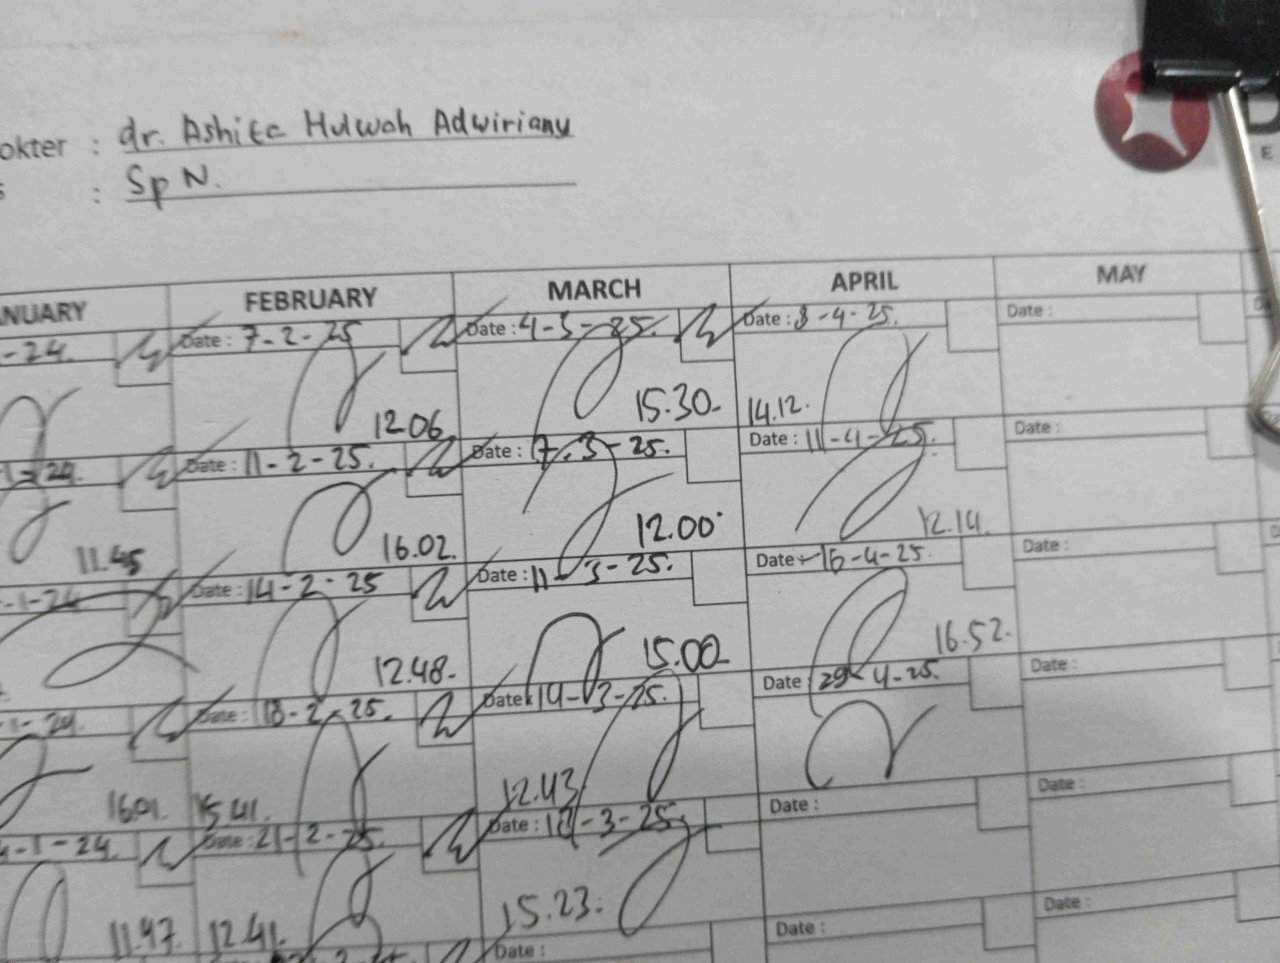 okter : dr. Ashita Hulwah Adwiriany
s : Sp N.
E
ANUARY FEBRUARY MARCH APRIL MAY
-24. Date : 7-2-25 Date : 4-3-25. Date : 8-4-25. Date :
12.06 15.30. 14.12.
-1-24. Date : 11-2-25. Date : 7.3-25. Date : 11-4-25. Date :
11.45 16.02. 12.00 12.14.
-1-24 Date : 14-2-25 Date : 11-3-25. Date : 15-4-25. Date :
12.48. 15.00 16.52.
-1-24 Date : 18-2-25. Date : 14-3-25. Date : 29-4-25. Date :
16.01. 15.41. 12.43
-1-24. Date : 21-2-25. Date : 18-3-25. Date : Date :
11.47. 12.41. 15.23.
Date : Date : Date :